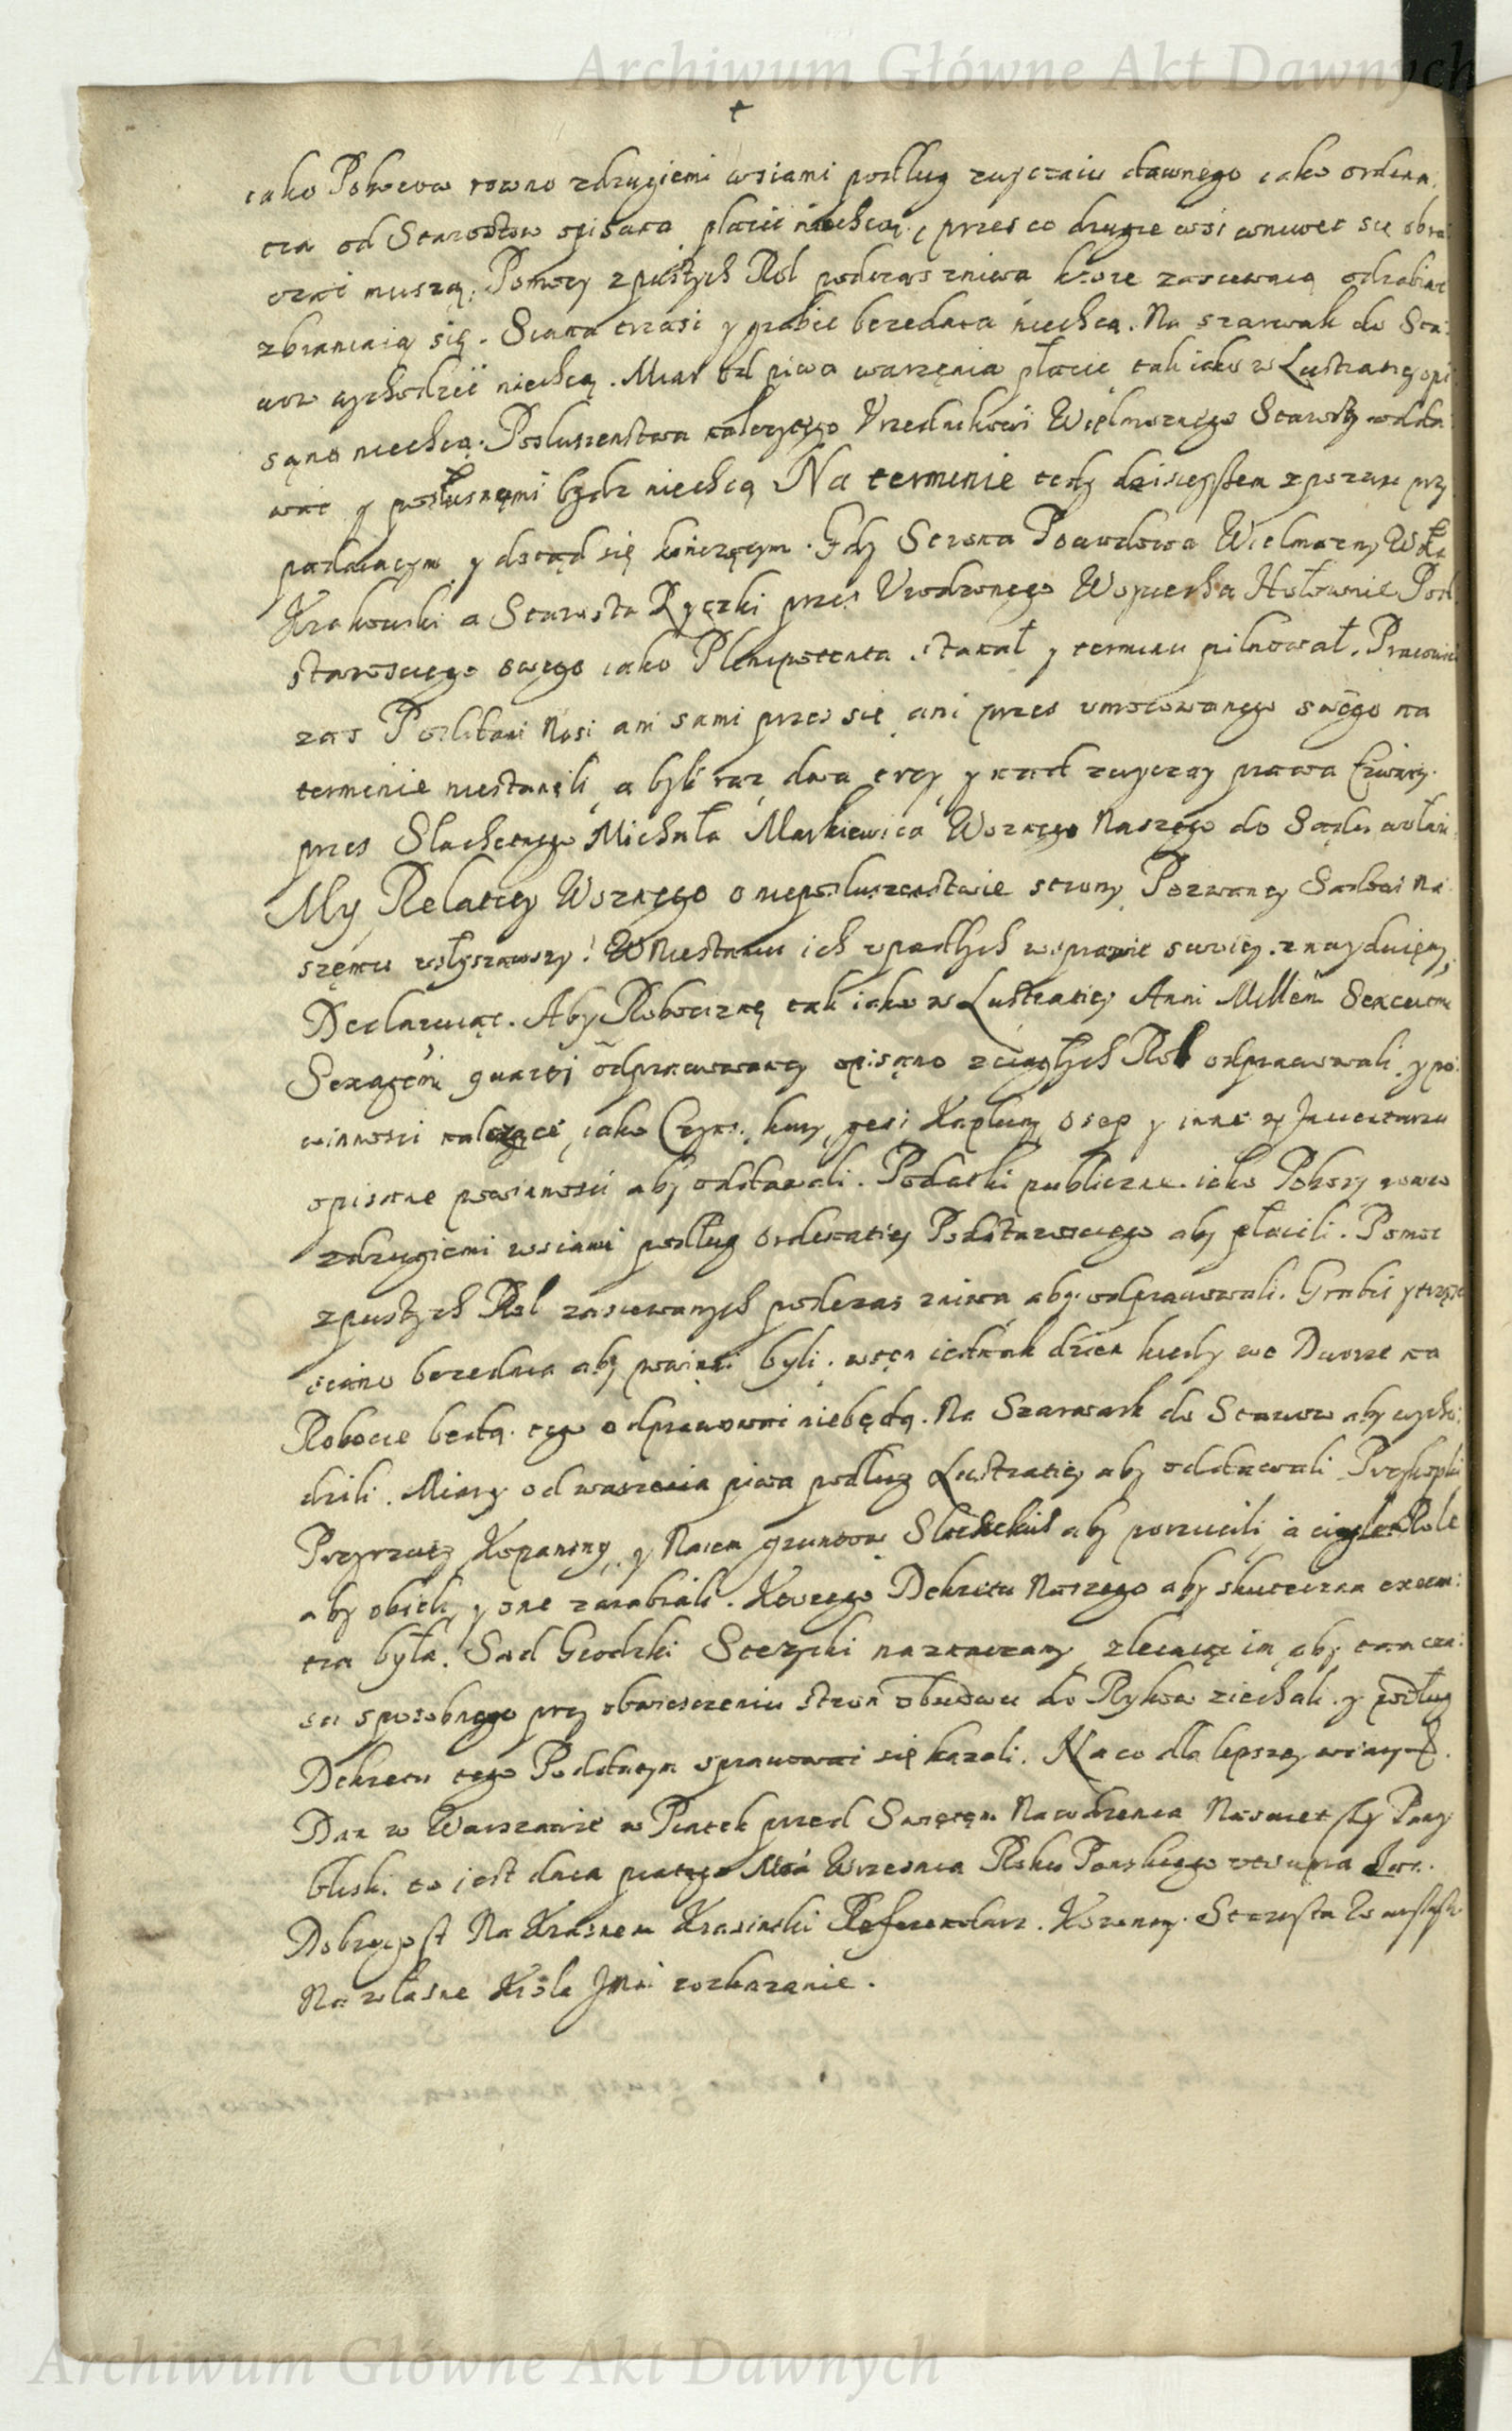 Archiwum Główne Akt Dawnych
iako Poborow rowno zdrugiemi wsiami podług zwyczaiu dawnego iako ordina
tia od Starostow opisana płacić niechcą, przes co drugie wsi wniwec się obra
cać muszą, Pomocy zpustych Rol podczas zniwa ktore zasiewaią odrabiać
zbraniaią się. Siana trząsć y grabić bezednia niechcą. Na szarwark do Sta
wow wychodzić niechcą. Miar od piwa warzęnia płacić tak iako w Lustratiey opi
sąno niechcą. Posłuszenstwa należytego Vrzędnikowi Wielmożnego Starosty oddа
wać y posłusznymi bydz niechcą Na terminie tedy dzisieyszem zpozwu przy
padaiącym y dotąd się kończącym. Gdy Strona Powodowa Wielmozny Wda
Krakowski a Starosta Rycżki przes Vrodzonego Woyciecha Hołownie Pod
starosciego swego iako Plenipotenta stanał y terminu pilnował. Pracowici
zas Poddani Nasi ani sami przes się ani przes vmocowanego swego na
terminie niestanęli, a byli raz, dwa, trzy, y nad zwyczay prawa czwarty
przes Slachetnego Michała Markiewica Woznego Naszego do Sądu wołani
My Relatiey Woznego o nieposłuszenstwie strony Pozwaney Sądowi Na
szęmu vsłyszawszy! W Niestaniu ich vpadłych wsprawie swoiey znayduięmy,
Declaruiąc. Aby Robociznę tak iako w Lustratiey Anni Millēm Sexcentmi
Sexagēmi quarti odprawowaney opisąno zciągłych Rol odprawowali y po
winnosci należące, iako Czynsz, kury, gęsi, Kapłuny, Osep y inne w Inwentarzu
opisane powinnosci aby oddawali. Podatki publiczne iako Pobory rowno
zdrugiemi wsiami podług ordinatiey Podstarosciego aby płacili. Pomoc
zpustych Rol zasiewanych podczas zniwa aby odprawowali. Grabić y trząsć
siano bezednia aby powinni byli, wtęn iednak dzien kiedy we Dworze na
Robocie będą tego odprawować niebędą. Na Szarwark do Stawow aby wycho
dzili. Miary od warzenia piwa podług Lustratiey aby oddawali Przykupki
Przyrzutę Kopaniny, y Naiem gruntow Slacheckich aby porzucili, a ciągłe Role
aby obieli, y one zarabiali. Ktorego Dekretu Naszego aby skuteczna execu
tia była. Sąd Grodzki Stezycki naznaczamy, zlecaiąc im aby tam cza
su sposobnego przy obwiesczeniu stron obudwu do Rykow ziechali y podług
Dekretu tego Poddanym sprawować się kazali. Na co dla lepszey wiary &.
Dan w Warszawie w Piątek przed Swiętęm Narodzenia Naswiętszy Panny
bliski to iest dnia piątego Msca Wrzesnia Roku Panskiego vtsupra Ian.
Dobrogost Na Krasnem Krasinski Referendarz Koronny Starosta Warszawski
Na własne Krola Jmci rozkazanie.
Archiwum Główne Akt Dawnych